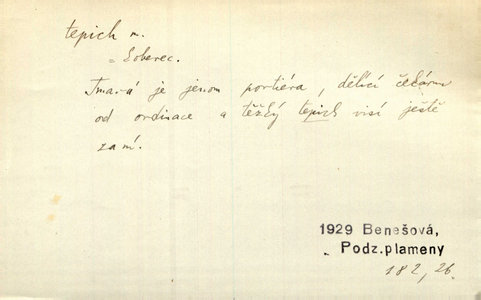 tepich m.
= koberec.
Tmavá je jenom portiéra, dělící čekárnu
od ordinace a těžký tepich visí ještě
za ní.
1929 Benešová,
Podz.plameny
182, 26.